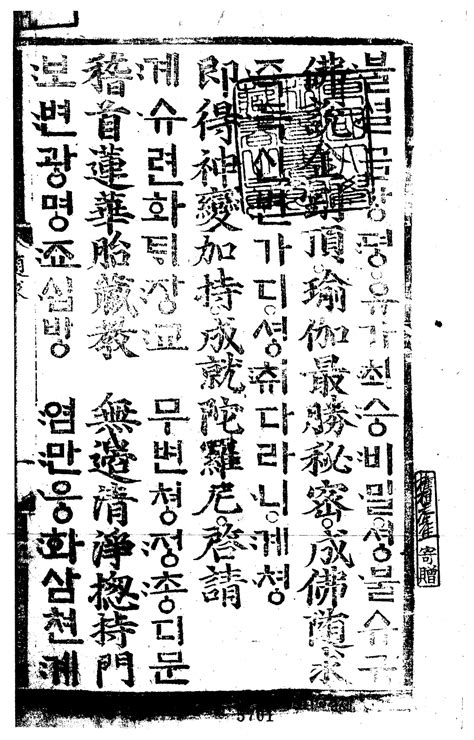 불셜금강뎡유가최승비밀셩불슈구
佛說金剛頂瑜伽最勝秘密成佛隨求
즉득신변가디셩취다라니계쳥
即得神變加持成就陀羅尼啓請
계슈련화ᄐᆡ장교 무변쳥졍총디문
稽首蓮華胎藏教 無邊清淨摠持門
보변광명죠십방 염만응화삼쳔계
寄贈
5701